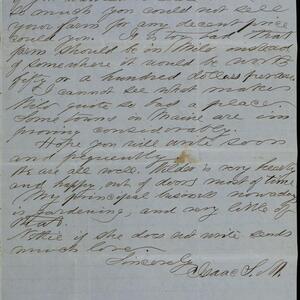 so much for could not sell
your farm for any decent price
could you. It is too bad that
farm should be in Milo instead
of somewhere it would be worth
fifty or a hundred dollars per acre
I cannot see what makes
Milo quite so bad a place.
Some towns in Maine are im
proving considerably.
Hope you will write soon
and frequently.
We are all well. Wilder is very hearty
and happy, out of doors most of time
My principal business nowadays
is gardening, and very little of
that.
Nettie if she does not write sends
much love.
Sincerely
Isaac